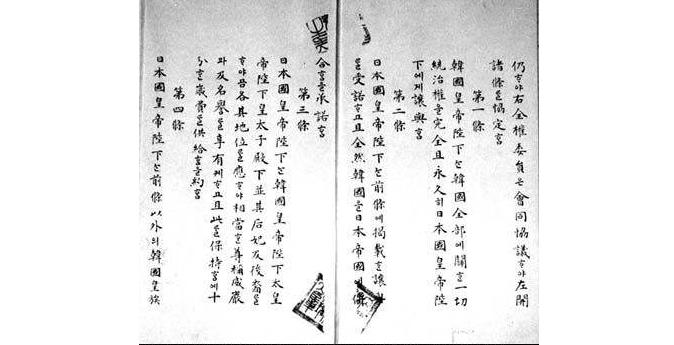 仍ᄒᆞ야右全權委員은會同協議ᄒᆞ야左開
諸條를協定홈
第一條
韓國皇帝陛下는韓國全部에關ᄒᆞᆫ一切
統治權을完全且永久히日本國皇帝陛
下에게讓與홈
第二條
日本國皇帝陛下는前條에揭載ᄒᆞᆫ讓與
를受諾ᄒᆞ고且全然韓國을日本帝國에倂
合홈을承諾홈
第三條
日本國皇帝陛下는韓國皇帝陛下太皇
帝陛下皇太子殿下並其后妃及後裔로
ᄒᆞ야곰各其地位를應ᄒᆞ야相當ᄒᆞᆫ尊稱威嚴
과及名譽를享有케ᄒᆞ고且此를保持홈에十
分ᄒᆞᆫ歲費를供給홈을約홈
第四條
日本國皇帝陛下는前條以外의韓國皇族